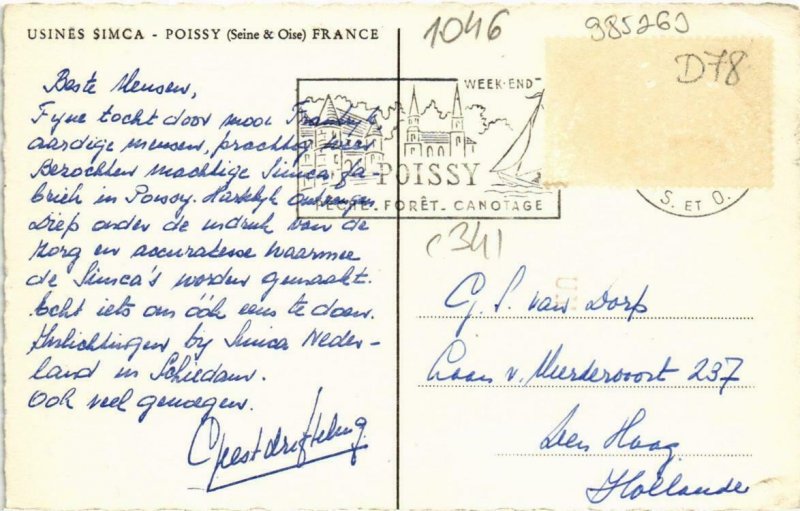 USINES SIMCA - POISSY (Seine & Oise) FRANCE
1046
985263
D78
Beste Mensen,
Fijne tocht door mooi Frankrijk,
aardige mensen, prachtig weer.
Bezochten machtige Simca fa-
briek in Poissy. Hartelyk ontvangen.
Diep onder de indruk van de
zorg en accuratesse waarmee
de Simca's worden gemaakt.
Echt iets om óók eens te doen.
Inlichtingen by Simca Neder-
land in Schiedam.
Ook veel genoegen.
WEEK-END
POISSY
PÊCHE - FORÊT - CANOTAGE
S. ET O.
c341
G. S. van Dorp
Laan v. Meerdervoort 237
Den Haag
Hollande